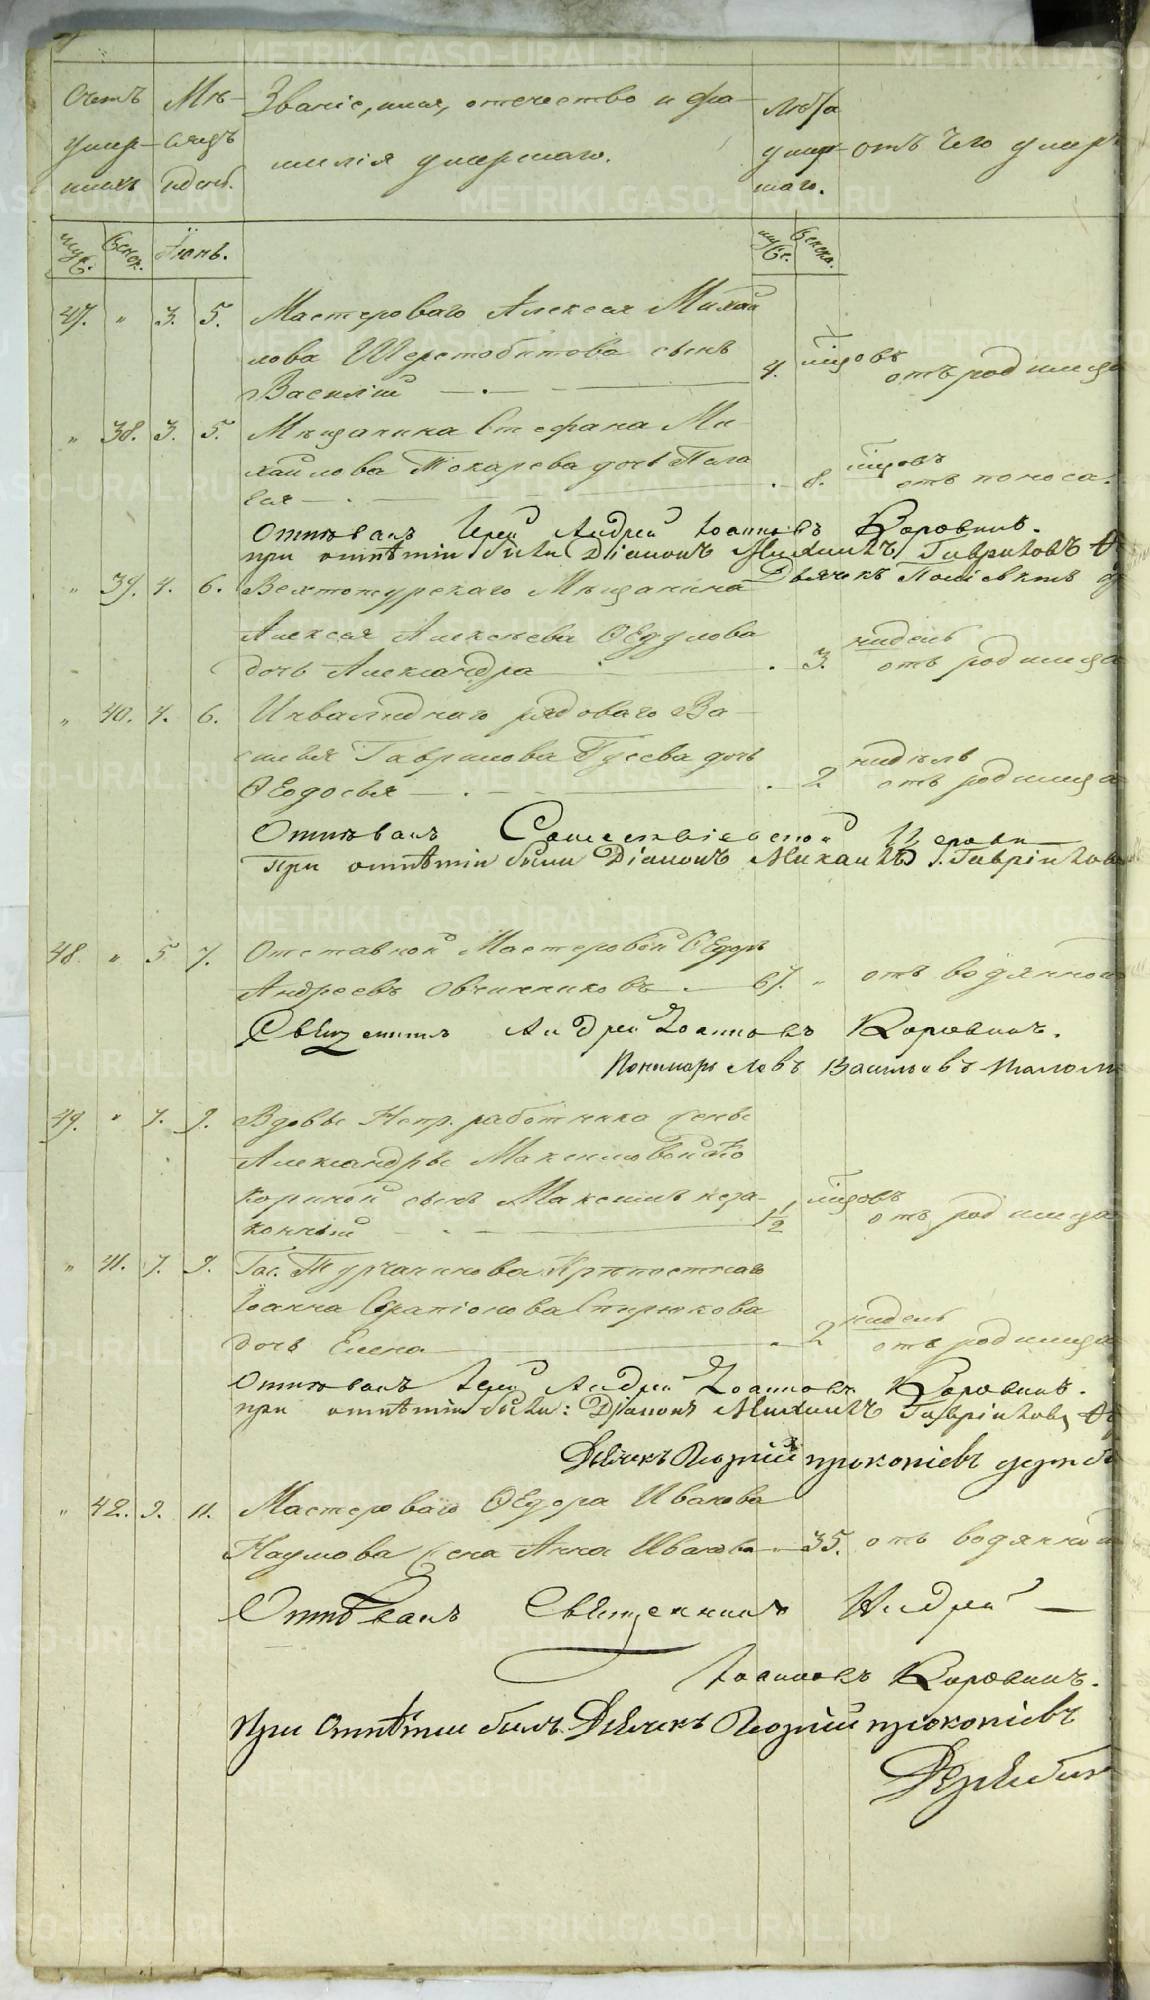 METRIKI.GASO-URAL.RU
Счетъ умер- шихъ
Мѣ- сяцъ
Званіе, имя, отечество и фа-
милія умершаго.
Лѣта умер- шаго.
отъ чего умеръ
муж. женск. Іюнь. муж. женска.
47. " 3. 5. Мастероваго Алексея Михай
лова Шерстобитова сынъ 4. годовъ
Василій —.— отъ родимца
" 38. 3. 5. Мѣщанина Стефана Ми-
хайлова Токарева дочь Пела
гея —.— . 8. годовъ отъ поноса.
Отпѣвалъ Іерей Андрей Іоанновъ Коровинъ.
при отпѣтіи были Діаконъ Михаилъ Гавриловъ
Дьячекъ
" 39. 4. 6. Верхотурскаго Мѣщанина
Алексея Алексѣева Ѳедулова недель
дочь Александра . 3. отъ родимца
" 40. 4. 6. Инвалиднаго рядоваго Ва-
силья Гаврилова Гусева дочь недѣль
Ѳеодосья —.— . 2 отъ родимца
Отпѣвалъ
при отпѣтіи были Діаконъ Михаилъ Гаврилов
48. " 5 7. Отставной Мастеровой Ѳедоръ
Андреевъ Овчинниковъ — 67. " отъ водяной
Андрей Іоанновъ Коровинъ.
Пономарь Левъ Васильевъ
49. " 7. 9. Вдовы Непр. работника жены
Александры
сынъ Максимъ неза- годовъ
конный 1 1/2 отъ родимца
" 41. 7. 9. Гос. Турчанинова Крѣпостнаго
Іоанна Спирюкова недель
дочь Елена — . 2 отъ родимца
Отпѣвалъ Іерей Андрей Іоанновъ Коровинъ.
при отпѣтіи были: Діаконъ Михаилъ Гаврилов
Дьячекъ Георгій прокопіевъ
" 42. 9. 11. Мастероваго Ѳедора Иванова
Наумова жена Анна Иванова — 35. отъ водяной
Отпѣвалъ Священникъ Андрей —
Іоанновъ Коровинъ.
при отпѣтіи былъ Дьячекъ Георгій прокопіевъ